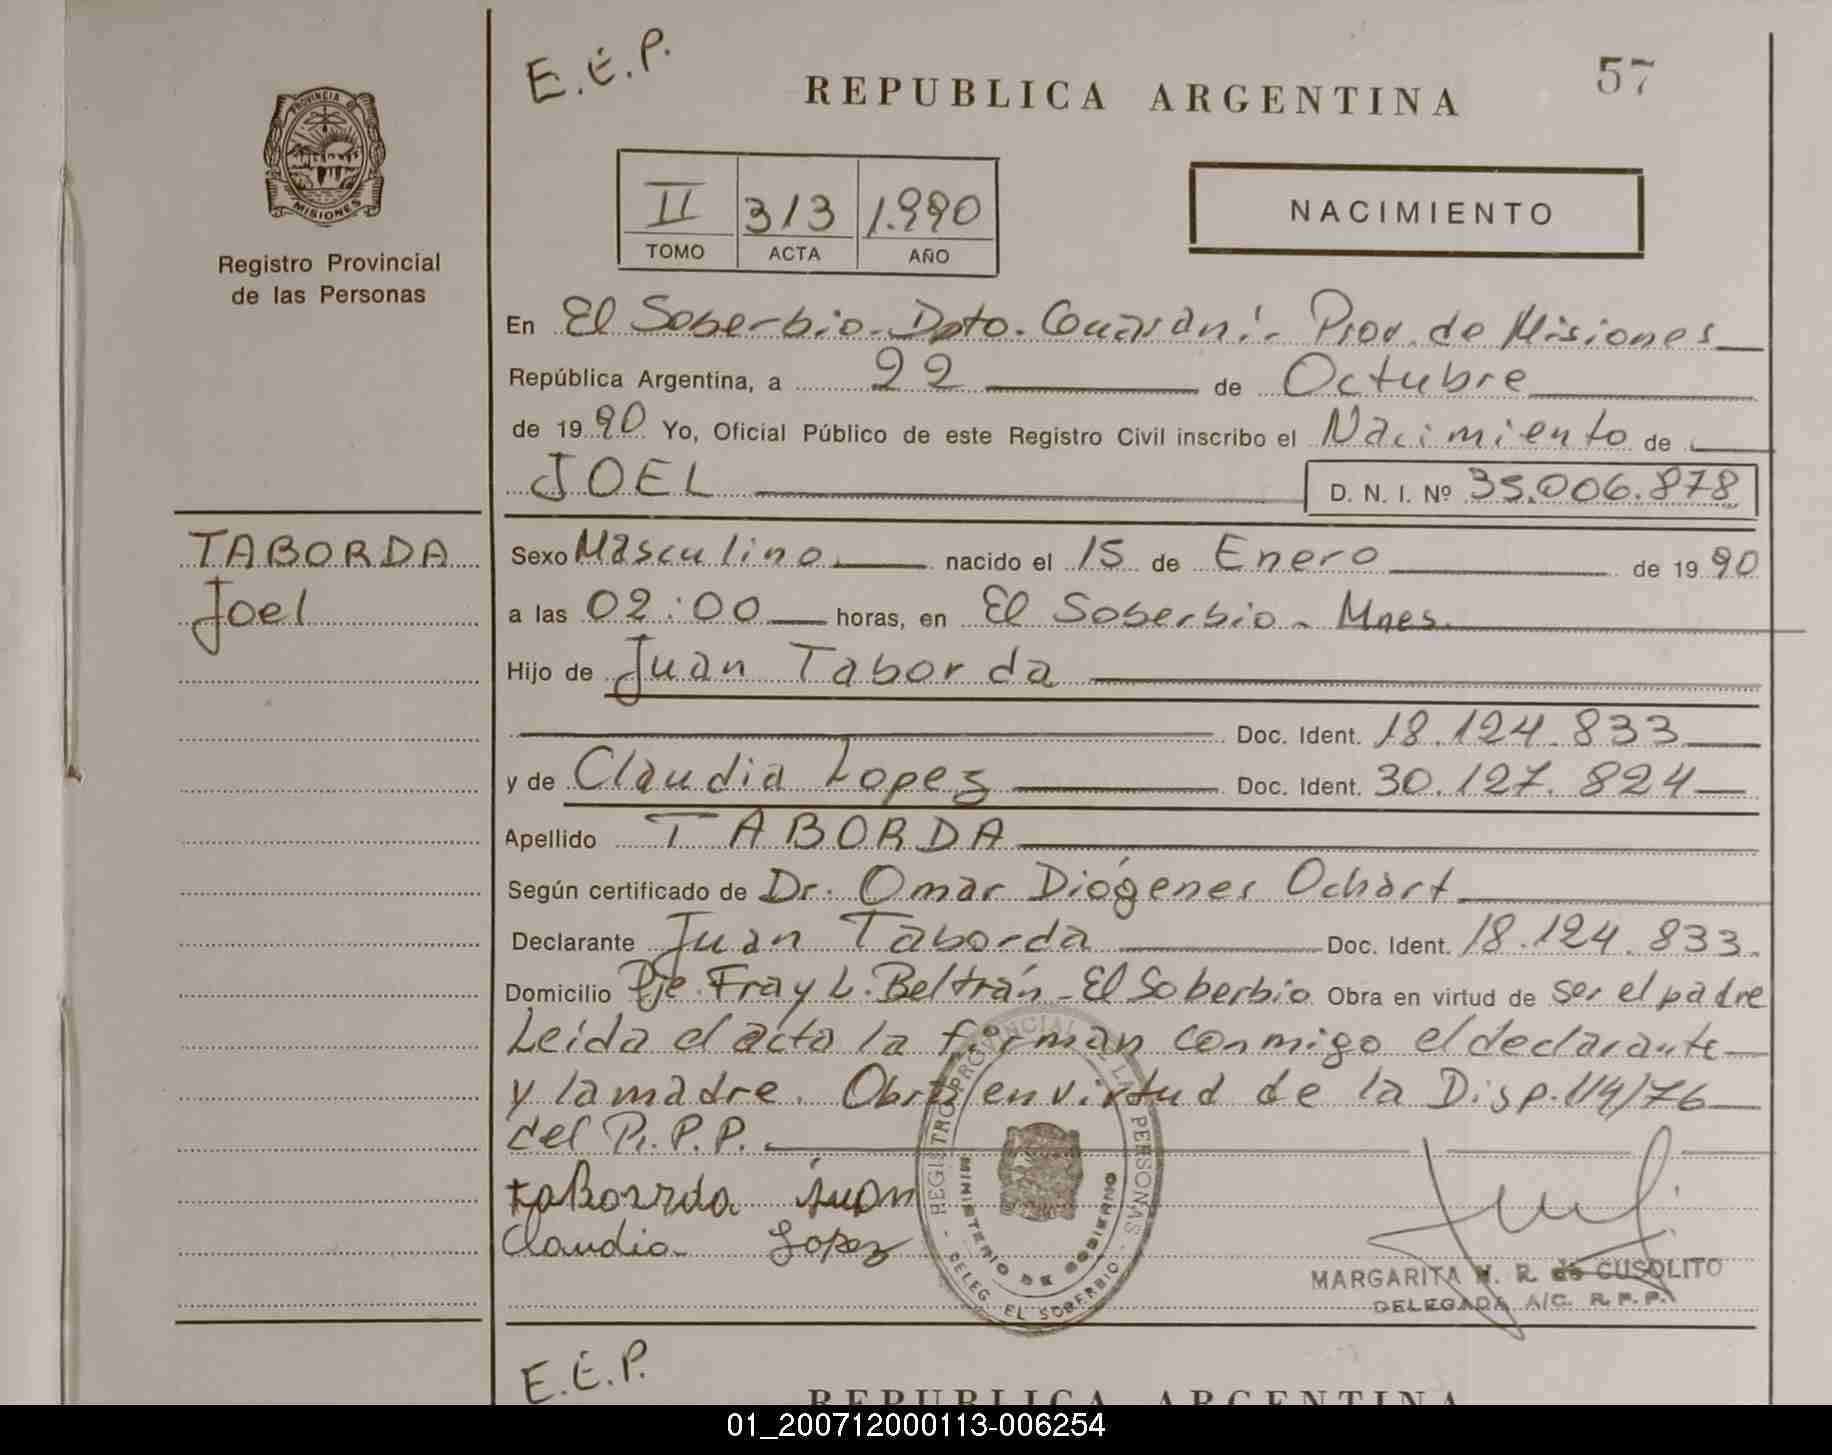 E.E.P.
REPUBLICA ARGENTINA
57
PROVINCIA DE
MISIONES
Registro Provincial
de las Personas
II 313 1.990
TOMO ACTA AÑO
NACIMIENTO
En El Soberbio - Dpto. Guaraní - Prov. de Misiones
República Argentina, a 22 de Octubre
de 1990 Yo, Oficial Público de este Registro Civil inscribo el Nacimiento de
JOEL D. N. I. Nº 35.006.878
TABORDA
Joel
Sexo Masculino nacido el 15 de Enero de 1990
a las 02:00 horas, en El Soberbio - Mnes.
Hijo de Juan Taborda
Doc. Ident. 18.124.833
y de Claudia Lopez Doc. Ident. 30.127.824
Apellido TABORDA
Según certificado de Dr. Omar Diógenes Ochart
Declarante Juan Taborda Doc. Ident. 18.124.833.
Domicilio Pje. Fray L. Beltrán - El Soberbio Obra en virtud de ser el padre
Leida el acta la firman conmigo el declarante
y la madre. Obra en virtud de la Disp. 114/76
del R.P.P.
taBorrda juan
Claudia Lopez
REGISTRO PROVINCIAL DE LAS PERSONAS
MINISTERIO DE GOBIERNO
DELEG. EL SOBERBIO
MARGARITA N. R. de CUSOLITO
DELEGADA A/C. R.P.P.
E.E.P.
REPUBLICA ARGENTINA
01_200712000113-006254